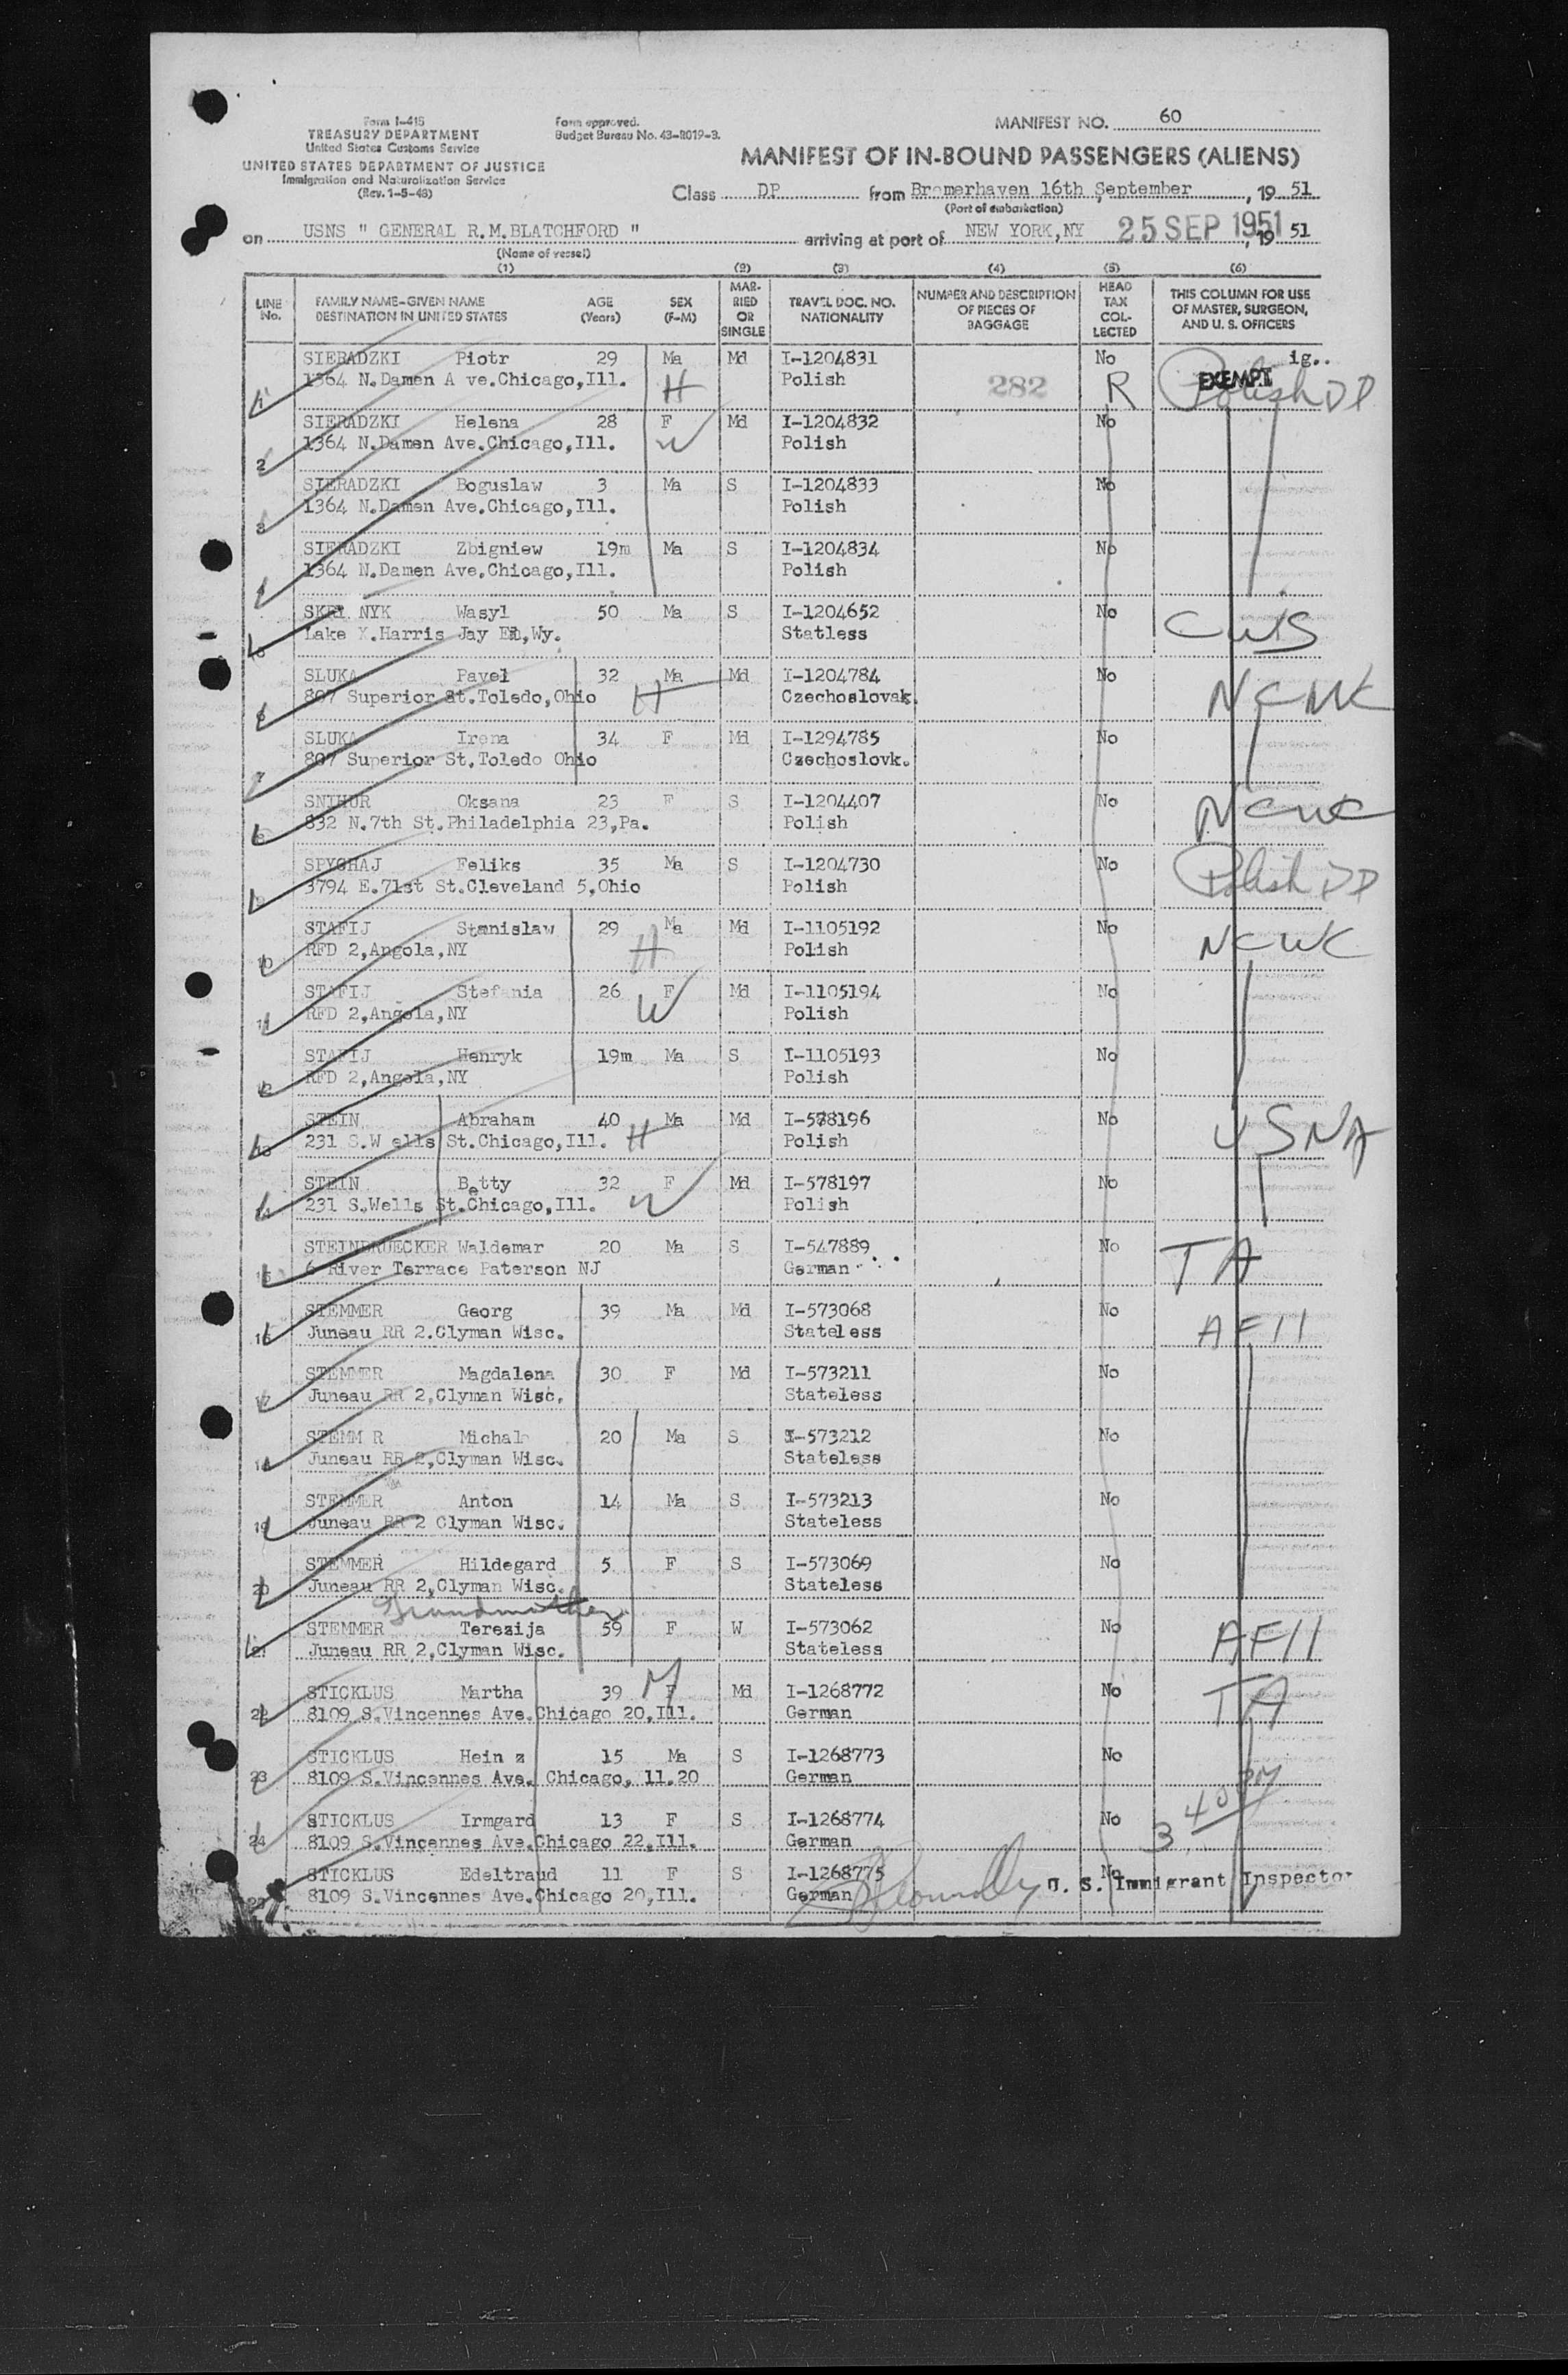 Form I-415
TREASURY DEPARTMENT
United States Customs Service
UNITED STATES DEPARTMENT OF JUSTICE
Immigration and Naturalization Service
(Rev. 1-5-48)
Form approved.
Budget Bureau No. 43-R019-3.
MANIFEST NO. 60
MANIFEST OF IN-BOUND PASSENGERS (ALIENS)
Class DP from Bremerhaven 16th, September, 19 51
(Port of embarkation)
on USNS " GENERAL R.M.BLATCHFORD " arriving at port of NEW YORK,NY 25 SEP 1951, 19 51
(Name of vessel)
(1) (2) (3) (4) (5) (6)
LINE No. FAMILY NAME-GIVEN NAME DESTINATION IN UNITED STATES AGE (Years) SEX (F-M) MARRIED OR SINGLE TRAVEL DOC. NO. NATIONALITY NUMBER AND DESCRIPTION OF PIECES OF BAGGAGE HEAD TAX COLLECTED THIS COLUMN FOR USE OF MASTER, SURGEON, AND U. S. OFFICERS
SIERADZKI Piotr 29 Ma Md I-1204831 No ig..
1 1364 N.Damen A ve.Chicago,Ill. H Polish 282 R EXEMPT Polish DP
SIERADZKI Helena 28 F Md I-1204832 No
2 1364 N.Damen Ave.Chicago,Ill. W Polish
SIERADZKI Boguslaw 3 Ma S I-1204833 No
3 1364 N.Damen Ave.Chicago,Ill. Polish
SIERADZKI Zbigniew 19m Ma S I-1204834 No
4 1364 N.Damen Ave.Chicago,Ill. Polish
NYK Wasyl 50 Ma S I-1204652 No CWS
5 Lake X.Harris Jay Wy. Statless
SLUKA Pavel 32 Ma Md I-1204784 No
6 807 Superior St.Toledo,Ohio H Czechoslovak. NCWC
SLUKA Irena 34 F Md I-1294785 No
7 807 Superior St.Toledo Ohio Czechoslovk.
SNIHUR Oksana 23 F S I-1204407 No NCWC
8 832 N.7th St.Philadelphia 23,Pa. Polish
SPYCHAJ Feliks 35 Ma S I-1204730 No Polish DP
9 3794 E.71st St.Cleveland 5.Ohio Polish
STAFIJ Stanislaw 29 Ma Md I-1105192 No NCWC
10 RFD 2,Angola,NY H Polish
STAFIJ Stefania 26 F Md I-1105194 No
11 RFD 2,Angola,NY W Polish
STAFIJ Henryk 19m Ma S I-1105193 No
12 RFD 2,Angola,NY Polish
STEIN Abraham 40 Ma Md I-578196 No USNA
13 231 S.W ells St.Chicago,Ill. H Polish
STEIN Betty 32 F Md I-578197 No
14 231 S.Wells St.Chicago,Ill. W Polish
STEINBRUECKER Waldemar 20 Ma S I-547889 No TA
15 6 River Terrace Paterson NJ German
STEMMER Georg 39 Ma Md I-573068 No
16 Juneau RR 2.Clyman Wisc. Stateless AFII
STEMMER Magdalena 30 F Md I-573211 No
17 Juneau RR 2,Clyman Wisc. Stateless
STEMM R Michal 20 Ma S I-573212 No
18 Juneau RR 2,Clyman Wisc. Stateless
STEMMER Anton 14 Ma S I-573213 No
19 Juneau RR 2 Clyman Wisc. Stateless
STEMMER Hildegard 5 F S I-573069 No
20 Juneau RR 2,Clyman Wisc. Stateless
Grandmother
STEMMER Terezija 59 F W I-573062 No AFII
21 Juneau RR 2,Clyman Wisc. Stateless
STICKLUS Martha 39 M F Md I-1268772 No TA
22 8109 S.Vincennes Ave.Chicago 20,Ill. German
STICKLUS Hein z 15 Ma S I-1268773 No
23 8109 S.Vincennes Ave. Chicago, 11.20 German
STICKLUS Irmgard 13 F S I-1268774 No 3 40 PM
24 8109 S.Vincennes Ave.Chicago 22,Ill. German
STICKLUS Edeltraud 11 F S I-1268775 No U. S. Immigrant Inspector
25 8109 S.Vincennes Ave.Chicago 20,Ill. German